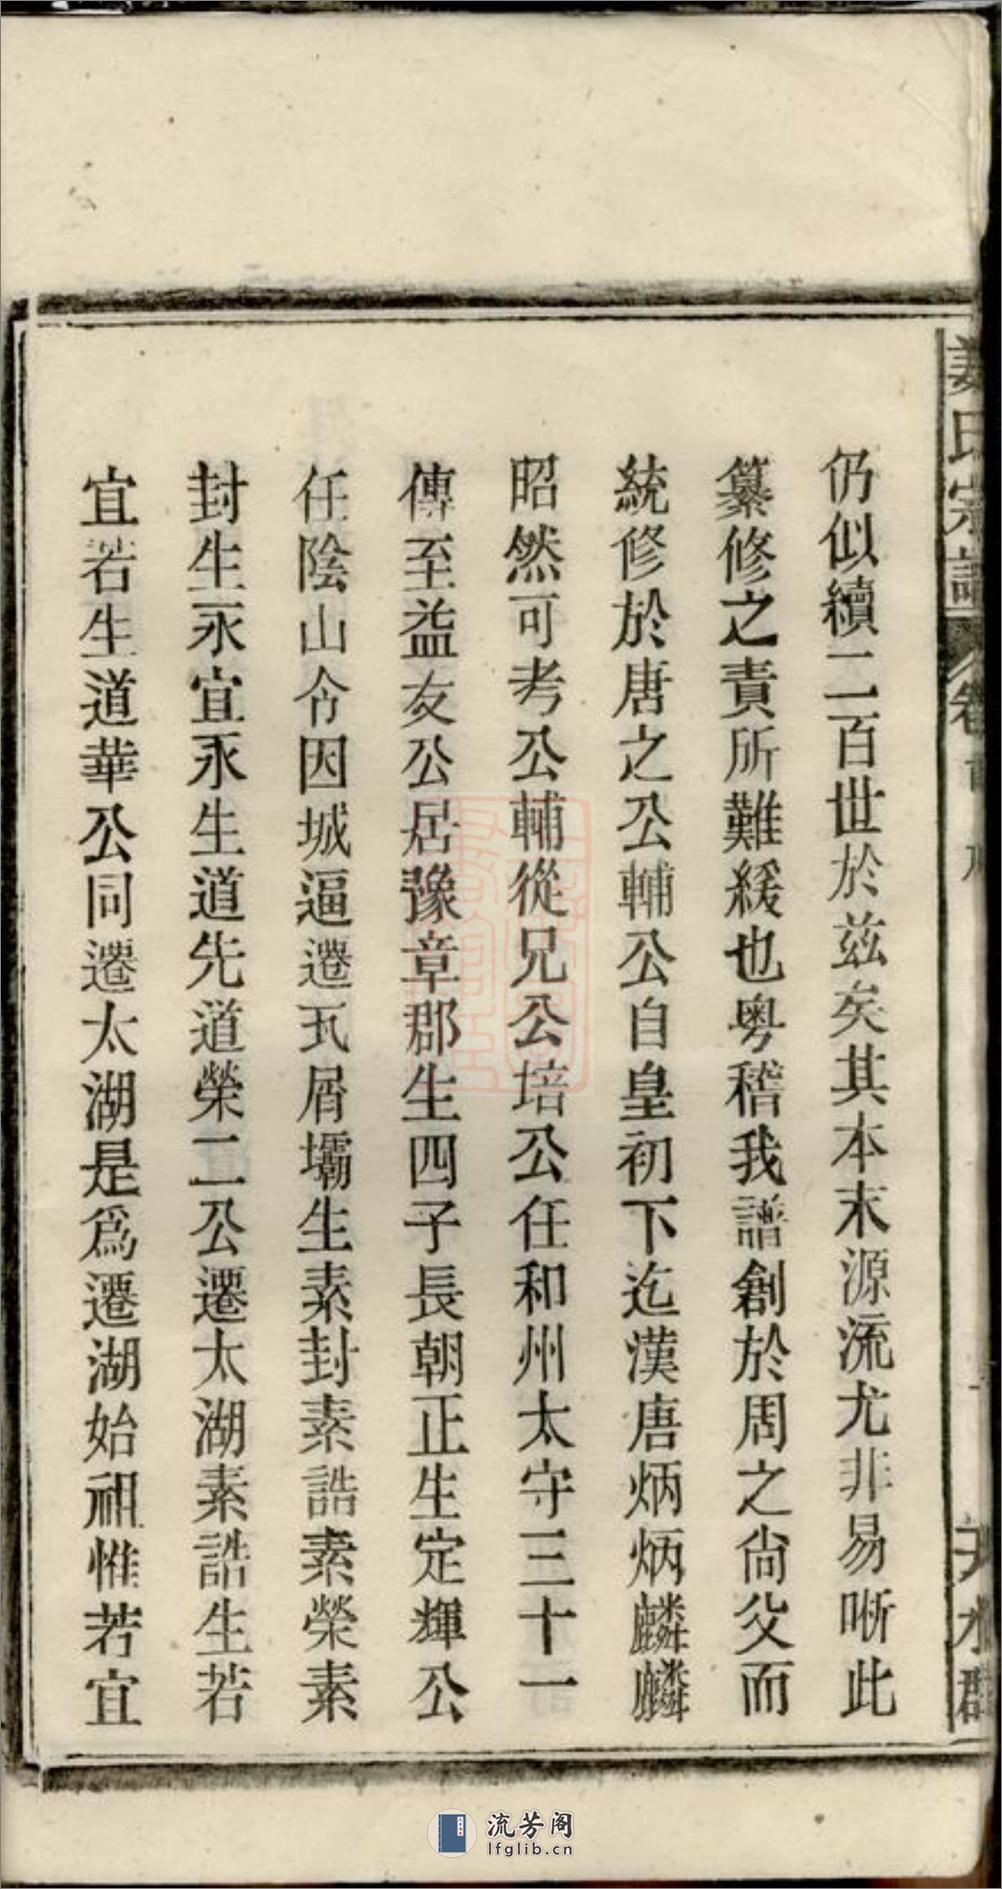 姜氏宗譜 卷首 天水郡
仍似續二百世於茲矣其本末源流尤非易晰此
纂修之責所難緩也粵稽我譜創於周之尙父而
統修於唐之公輔公自皇初下迄漢唐炳炳麟麟
昭然可考公輔從兄公培公任和州太守三十一
傳至益友公居豫章郡生四子長朝正生定輝公
任陰山令因城逼遷瓦屑壩生素封素誥素榮素
封生永宜永生道先道榮二公遷太湖素誥生若
宜若生道華公同遷太湖是爲遷湖始祖惟若宜
流芳阁
lfglib.cn